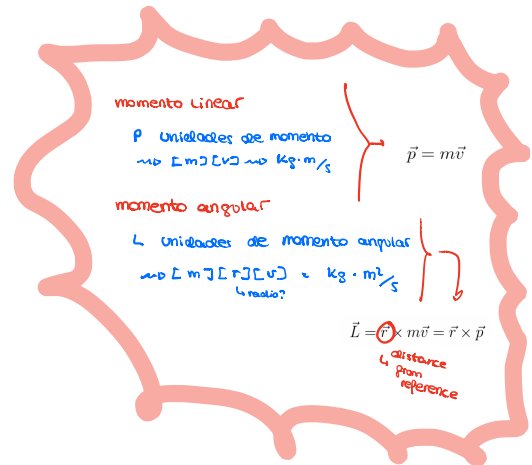 momento Linear
P unidades de momento
⇝ [m][v] ⇝ kg·m/s
$\vec{p} = m\vec{v}$
momento angular
L unidades de momento angular
⇝ [m][r][v] = kg·m²/s
↳ radio?
$\vec{L} = \vec{r} \times m\vec{v} = \vec{r} \times \vec{p}$
↳ distance
from
reference